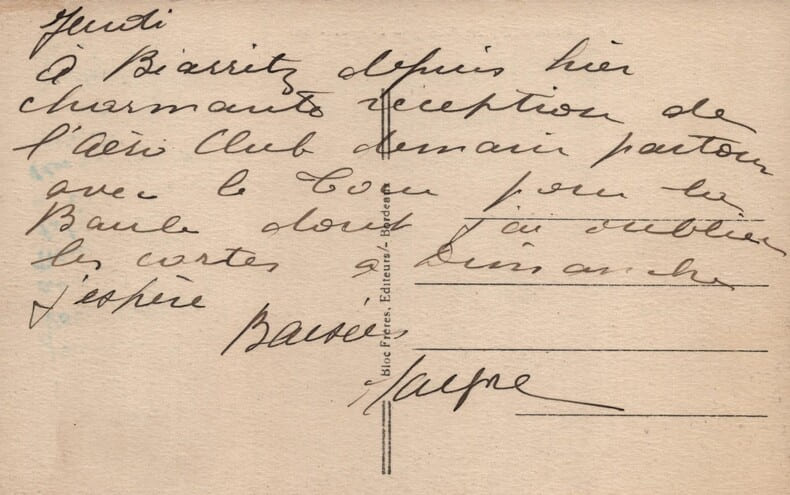 Jeudi
à Biarritz depuis hier
charmante réception de
l'Aéro Club demain partons
avec le Tour pour la
Baule dont j'ai oublié
les cartes à Dimanche
j'espère
Baisers
Bloc Frères, Editeurs - Bordeaux